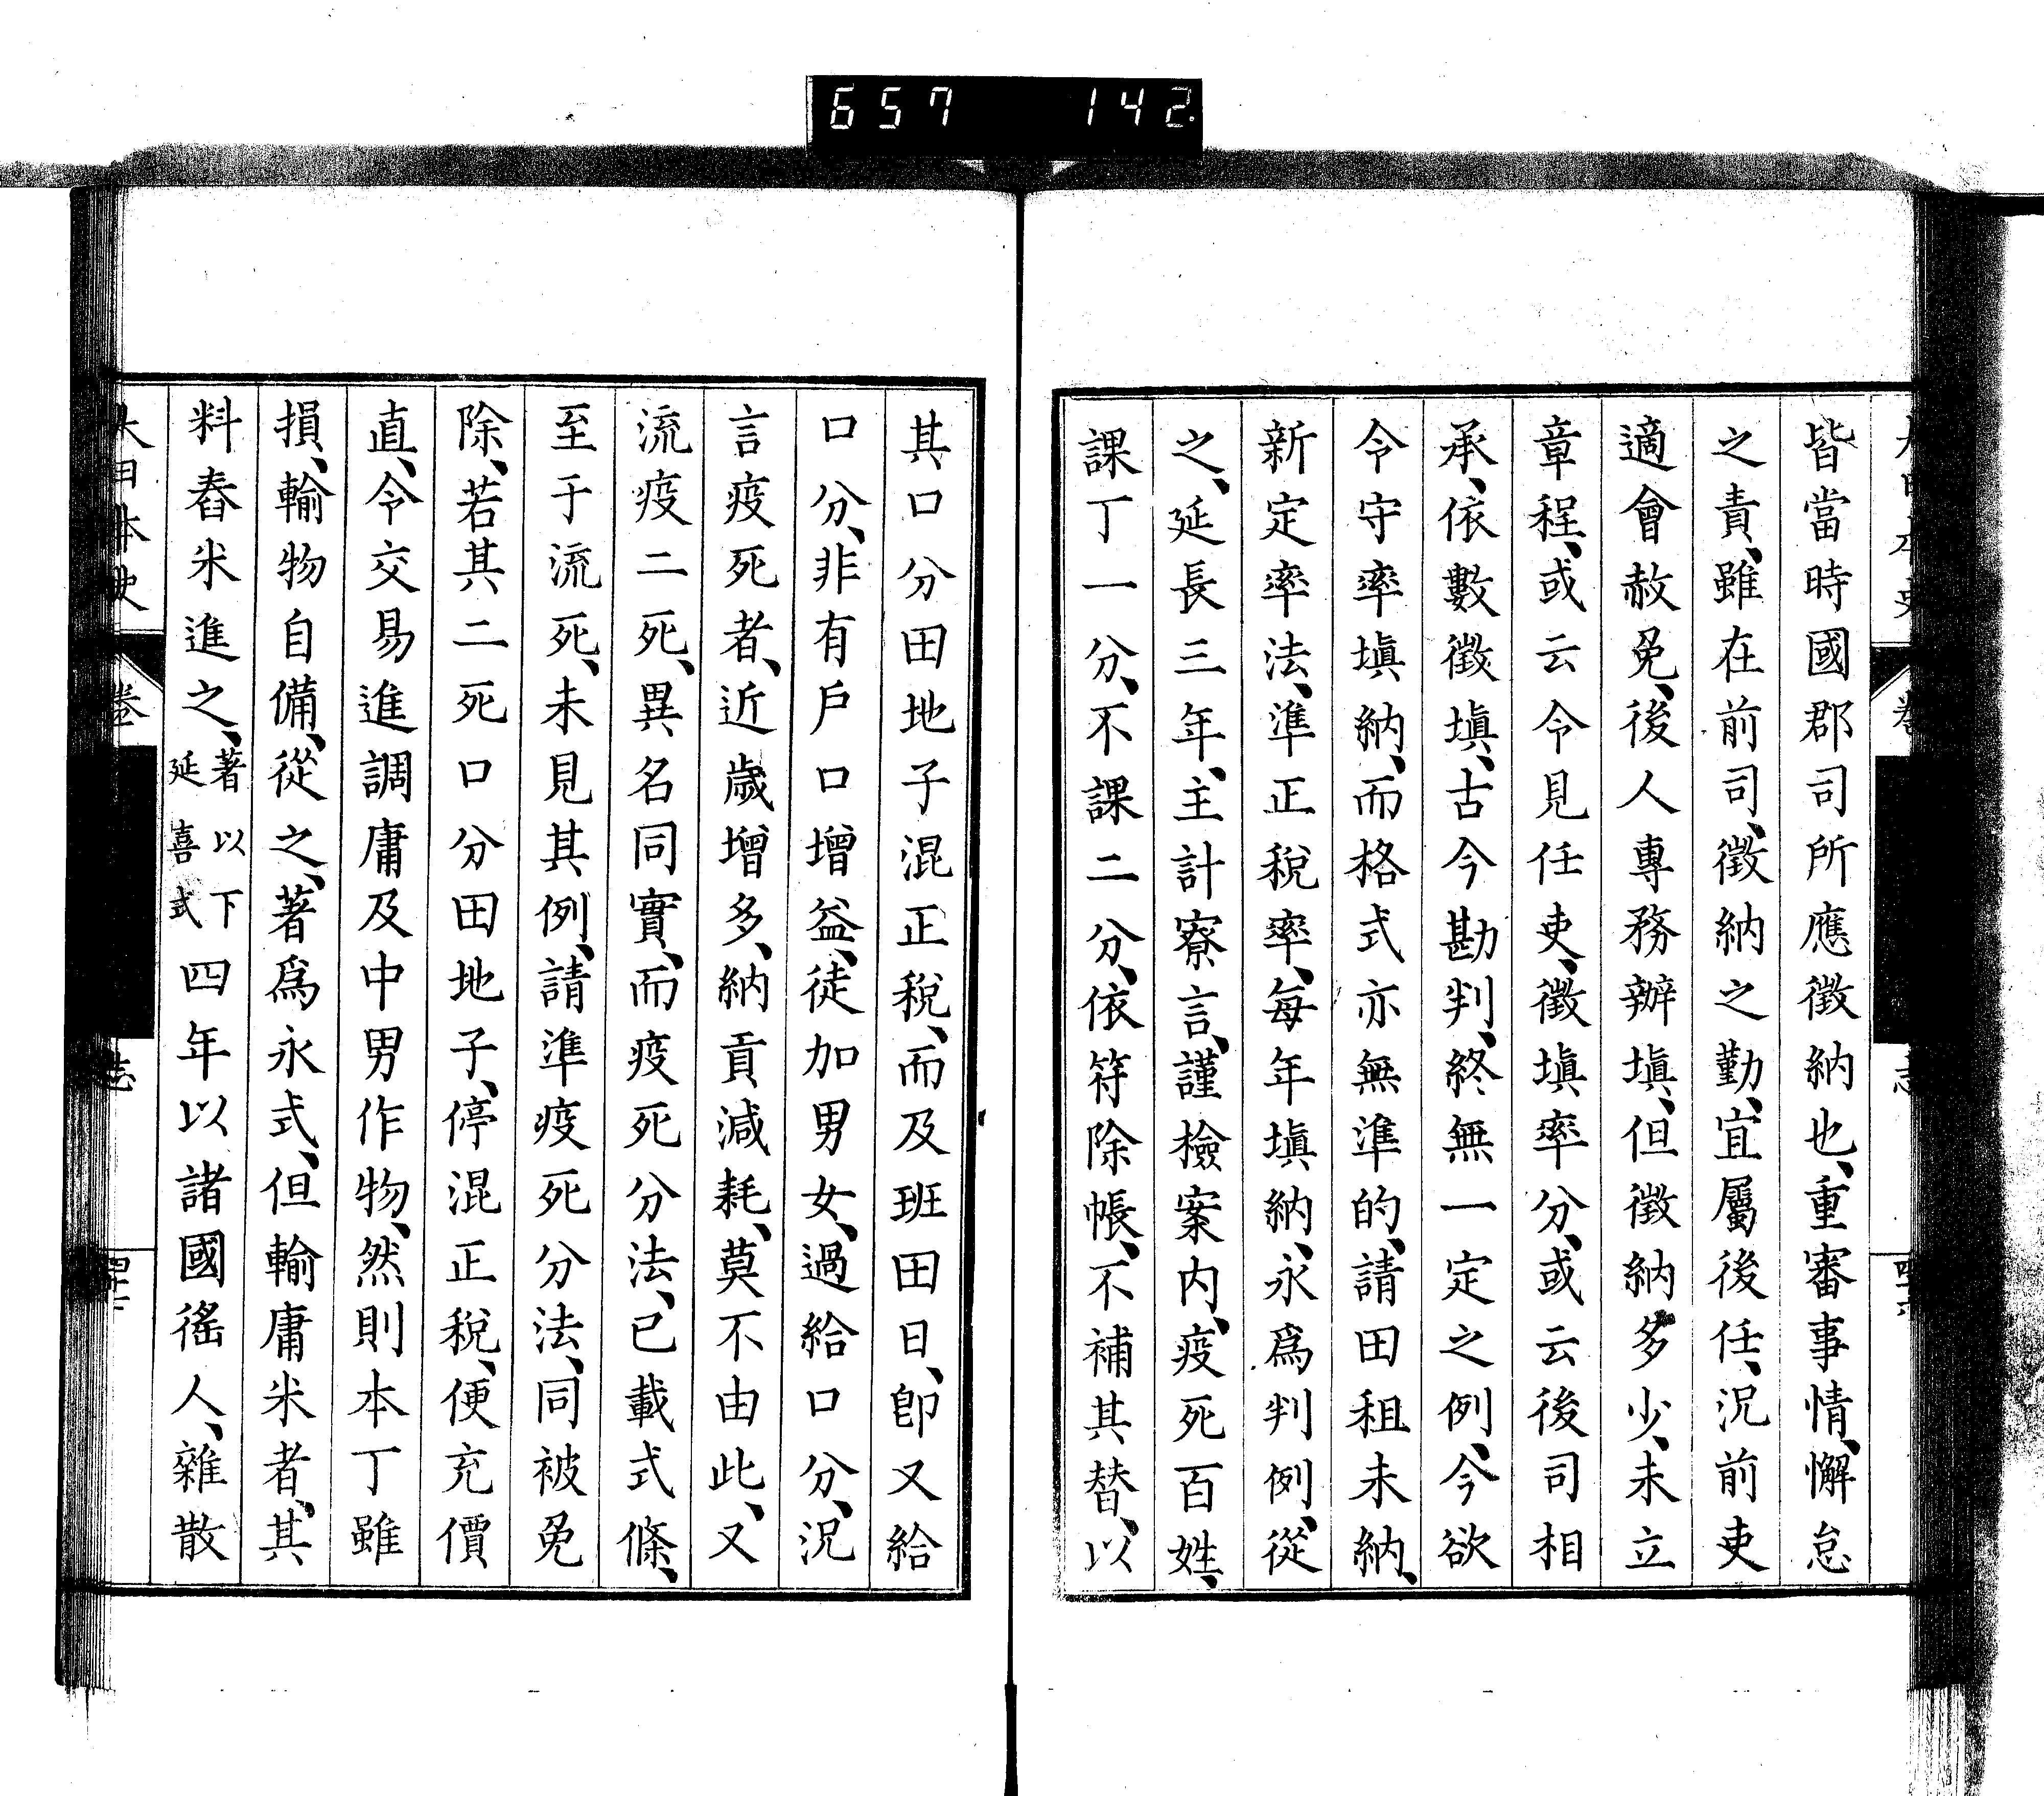 657 142
皆當時國郡司所應徵納也、重審事情、懈怠
之責、雖在前司、徵納之勤、宜屬後任、況前吏
適會赦免、後人專務辦塡、但徵納多少、未立
章程、或云令見任吏、徵塡率分、或云後司相
承、依數徵塡、古今勘判、終無一定之例、今欲
令守率塡納、而格式亦無準的、請田租未納、
新定率法、準正稅率、每年塡納、永爲判例、從
之、延長三年、主計寮言、謹檢案內、疫死百姓、
課丁一分、不課二分、依符除帳、不補其替、以
其口分田地子混正稅、而及班田日、卽又給
口分、非有戶口增益、徒加男女、過給口分、況
言疫死者、近歲增多、納貢減耗、莫不由此、又
流疫二死、異名同實、而疫死分法、已載式條、
至于流死、未見其例、請準疫死分法、同被免
除、若其二死口分田地子、停混正稅、便充價
直、令交易進調庸及中男作物、然則本丁雖
損、輸物自備、從之、著爲永式、但輸庸米者、其
料舂米進之、著以下延喜式四年以諸國徭人、雜散
大日本史 卷 志